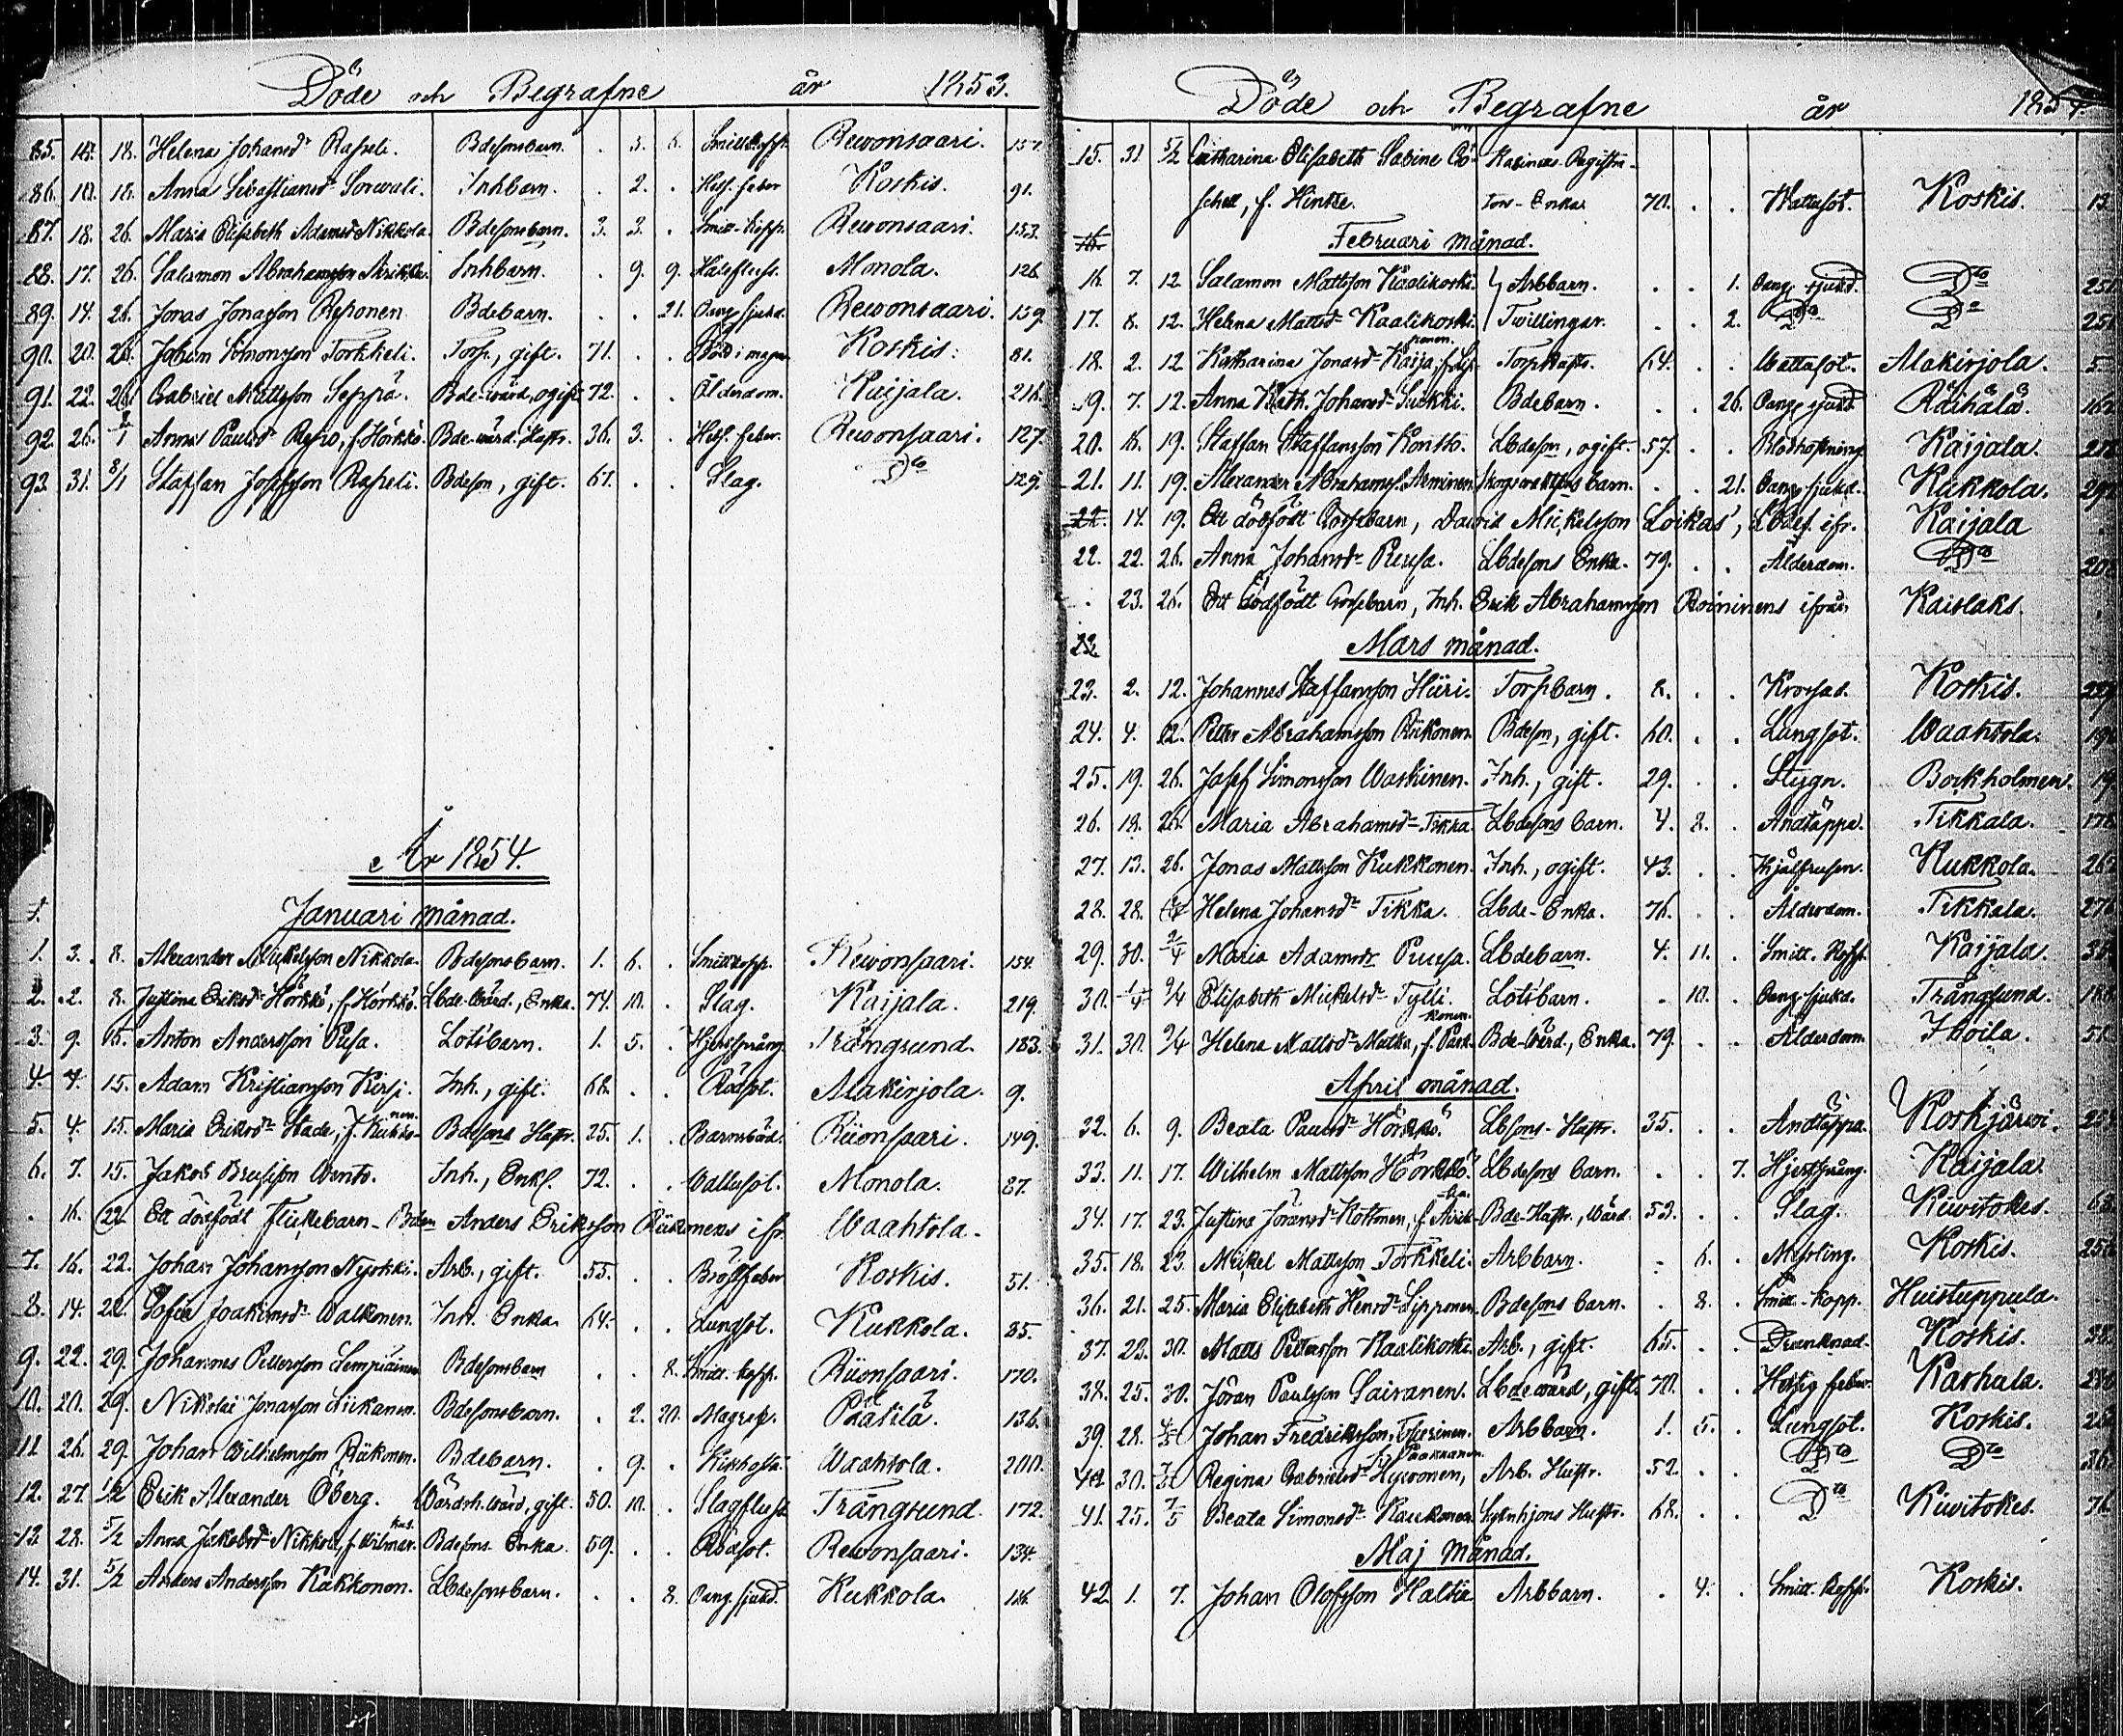 Döde och Begrafne år 1853.
85. 18. 18. Helena Johansdr Rapeli. Bdesonsbarn. . 3. 6. Smittkopp. Rewonsaari. 157.
86. 10. 18. Anna Sebastiansdr Sorwali. Inhbarn. . 2. . Hets. feber Koskis. 91.
87. 18. 26. Maria Elisabeth Adamsdr Nikkola. Bdesonsbarn. 3. 3. . Smitt-kopp. Rewonsaari. 153.
88. 17. 26. Salomon Abrahamsson Inhbarn. . 9. 9. Halsfluss. Monola. 126.
89. 14. 26. Jonas Jonasson Reponen Bdebarn. . . 21. Oang. sjukd. Rewonsaari. 159.
90. 20. 26. Johan Simonsson Torkkeli. Torp., gift. 71. . . Koskis. 81.
91. 22. 26. Gabriel Mattsson Seppä. Bde-wärd, ogift 72. . . Ålderdom. Kaijala. 216.
92. 26. 1/1 Anna Paulsdr Repo, f. Hörkkö. Bde-wärd. Hustr. 36. 3. . Hets. feber. Rewonsaari. 127.
93. 31. 8/1 Staffan Josefsson Rapeli. Bdeson, gift. 61. . . Slag. Dto 129.
År 1854.
Januari månad.
1. 3. 8. Alexander Mickelsson Nikkola. Bdesonsbarn. 1. 6. . Smittkopp. Rewonsaari. 154.
2. 2. 8. Justina Eriksdr Hörkkö, f. Hörkkö. Lbde-wärd., Enka. 74. 10. . Slag. Kaijala. 219.
3. 9. 15. Anton Andersson Pusa. Lotsbarn. 1. 5. . Hjertsprång. Trångsund. 183.
4. 7. 15. Adam Kristiansson Kirsj. Inh., gift. 68. . . Rödsot. Makirjola. 9.
5. 4. 15. Maria Eriksdr Stade, f. Kukkonen. Bdesons Hustr. 25. 1. . Barnsbörd. Riionsaari. 149.
6. 7. 15. Jakob Brusisson Wento. Inh., Enkl. 72. . . Wattusot. Monola. 87.
. 16. 22. Ett dödfödt flickebarn - Bden Anders Eriksson Riikonens ifr. Waahtola.
7. 16. 22. Johan Johansson Nyrkki. Arb., gift. 55. . . Bröstfeber Koskis. 51.
8. 14. 22. Sofia Joakimsdr Walkonen. Inh. Enka. 64. . . Lungsot. Kukkola. 85.
9. 22. 29. Johannes Pettersson Lempiäinen Bdesonsbarn . . 8. Smitt-kopp. Riionsaari. 170.
10. 20. 29. Nikolai Jonasson Liikanen. Bdesonsbarn. . 2. 20. Magref. Päätilä. 136.
11. 26. 29. Johan Wilhelmsson Riikonen. Bdebarn. . 9. . Kikhosta. Waahtola. 200.
12. 27. 1/2 Erik Alexander Öberg. Wärdsh. wärd, gift. 50. 10. . Slagfluss Trångsund. 172.
13. 28. 5/2 Anna Jakobsdr Nikkola, f. Bdesons Enka. 59. . . Rödsot. Rewonsaari. 134.
14. 31. 5/2 Anders Andersson Kukkonen. Lbdesonsbarn. . . 8. Oang. sjukd. Kukkola.
Döde och Begrafne år 1854.
15. 31 5/2 Catharina Elisabeth Sabine Gö- Kasinas Registra-
schel, f. Hintze. tors-Enka 70. . . Wattusot. Koskis. 13.
16.
Februari månad.
16. 7. 12 Salamon Mattsson Kaalikoski. Arbbarn. . . 1. Oang. sjukd. Dto 251
17. 8. 12. Helena Mattsdr Kaalikoski. Twillingar. . . 2. Dto Dto 251
18. 2. 12 Katharina Jonasdr Kaija, f. Torphustr. 64. . . Wattusot. Makirjola. 5
19. 7. 12. Anna Kath. Johansdr Suikki. Bdebarn. . . 26. Oang. sjukd. Räihälä. 162
20. 16. 19. Staffan Staffansson Kontto. Lbdeson, ogift. 57. . . Blodhostning. Kaijala.
21. 11. 19. Alexander Abrahamss. Arminen. Skogswaktarsbarn. . . 21. Oang. sjukd. Kukkola.
22. 14. 19. Ett dödfödt Gossebarn, David Mickelsson Loikas', Lbdes. ifr. Kaijala
22. 22. 26. Anna Johansdr Puusa. Lbdesons Enka. 79. . . Ålderdom. Dto
. 23. 26. Ett dödfödt Gossebarn, Inh. Erik Abrahamsson Roininens ifrån Kaislaks.
23.
Mars månad.
23. 2. 12. Johannes Staffansson Hiiri. Torpbarn. 8. . . Krossad. Koskis.
24. 4. 12. Petter Abrahamsson Riikonen. Bdeson, gift. 60. . . Lungsot. Waahtola.
25. 19. 26. Josef Simonsson Waskinen. Inh., gift. 29. . . Stygn. Borkholmen. 19
26. 18. 26. Maria Abrahamsdr Tikka. Lbdesons barn. 4. 8. . Andtäppa. Tikkala. 178
27. 13. 26. Jonas Mattsson Kukkonen. Inh., ogift. 43. . . Ihjälfrusen. Kukkola.
28. 28. Helena Johansdr Tikka. Lbde-Enka. 76. . . Ålderdom. Tikkala.
29. 30. 2/4 Maria Adamsdr Puusa. Lbdebarn. 4. 11. . Smitt. Kopp. Kaijala.
30. 1/4 9/4 Elisabeth Mickelsdr Tylli. Lotsbarn. . 10. . Oang. sjukd. Trångsund.
31. 30. 9/4 Helena Mattsdr Mutka, f. Parkkonen. Bde-wärd., Enka. 79. . . Ålderdom. Ihoila. 51
April månad.
32. 6. 9. Beata Paulsdr Hörkkö. Lbsons-Hustr. 35. . . Andtäppa. Koskjärwi.
33. 11. 17. Wilhelm Mattsson Hörkkö. Lbdesons barn. . . 7. Hjertsprång. Kaijala.
34. 17. 23. Justina Jöransdr Kottonen, f. Bde-Hustr., wärd. 53. . . Slag. Kiiwitokes.
35. 18. 23. Mickel Mattsson Torkkeli. Arbbarn. . 6. . Messling. Koskis.
36. 21. 25. Maria Elisabeth Henrsdr Lipponen. Bdesons barn. . 8. . Smitt-Kopp. Huistuppula.
37. 23. 30. Matts Pettersson Kaalikoski. Arb., gift. 65. . . Drunknad. Koskis.
38. 25. 30. Jöran Paulsson Sairanen. Lbdewärd, gift. 70. . . Hetsig feber. Karhula.
39. 28. Johan Fredriksson Tiurinen. Arbbarn. 1. 5. . Lungsot. Koskis.
40 30. Regina Gabrielsdr Hywönen, f. Paakkanen. Arb. Hustr. 52. . . Dto Dto
41. 25. 7/5 Beata Simonsdr Kaukonen Sytnhjons Hustr. 68. . . Dto Kiiwitokes.
Maj månad.
42 1. 7. Johan Olofsson Haltia Arbbarn. . 4. . Smitt-kopp. Koskis.